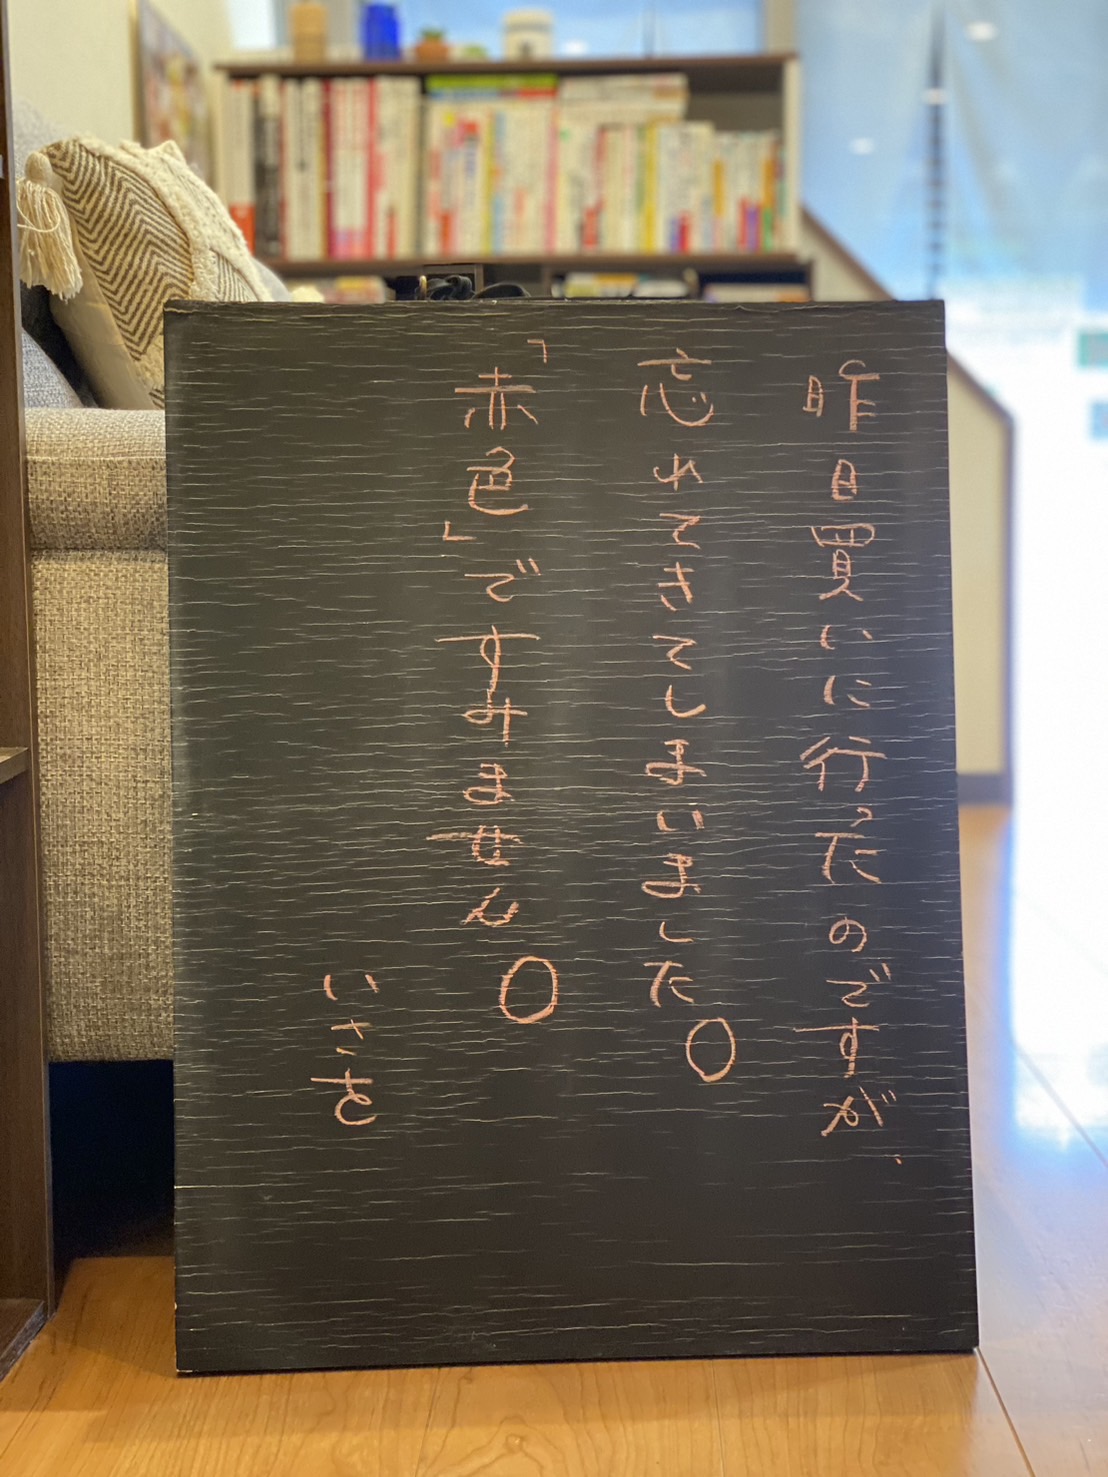 昨日買いに行ったのですが、
忘れてきてしまいました。
「赤色」ですみません。
いさを